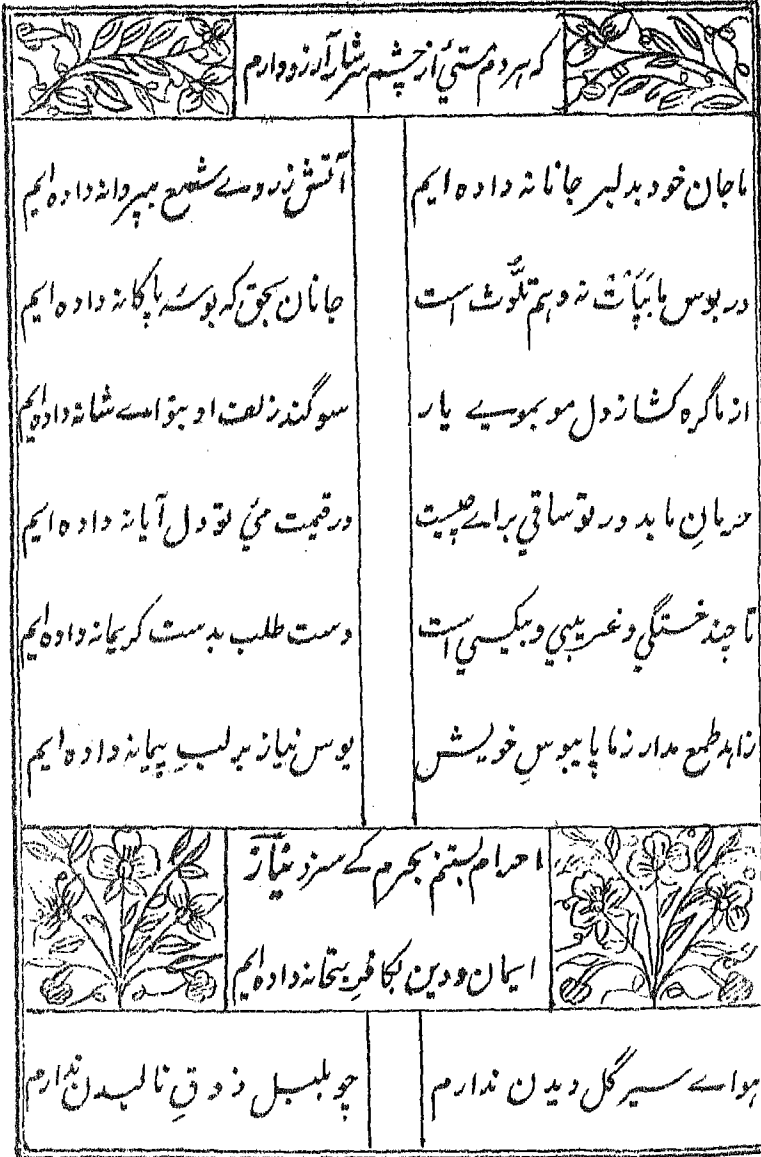 که هر دم مستیٔ از چشم سرشار آرزو دارم
ما جان خود بدلبر جانانه داده ایم
آتش ز روے شمع بپروانه داده ایم
در بوس ما بپات نه وهم تلوّث است
جانان بحق که بوسه پاکانه داده ایم
از ما گره کشا ز دل مو بموے یار
سوگند زلف او بتو اے شانه داده ایم
حرمانِ ما بدور تو ساقي براے چیست
در قیمت مئ تو دل آیا نه داده ایم
تا چند خستگي و غریبي و بیکسي است
دست طلب بدست کریمانه داده ایم
زاهد طمع مدار ز ما پایبوسِ خویش
بوس نیاز بر لبِ پیمانه داده ایم
احرام بستنم بحرم کے سزد نیاز
ایمان و دین بکافرِ بتخانه داده ایم
هواے سیر گل دیدن ندارم
چو بلبل ذوقِ نالیدن ندارم